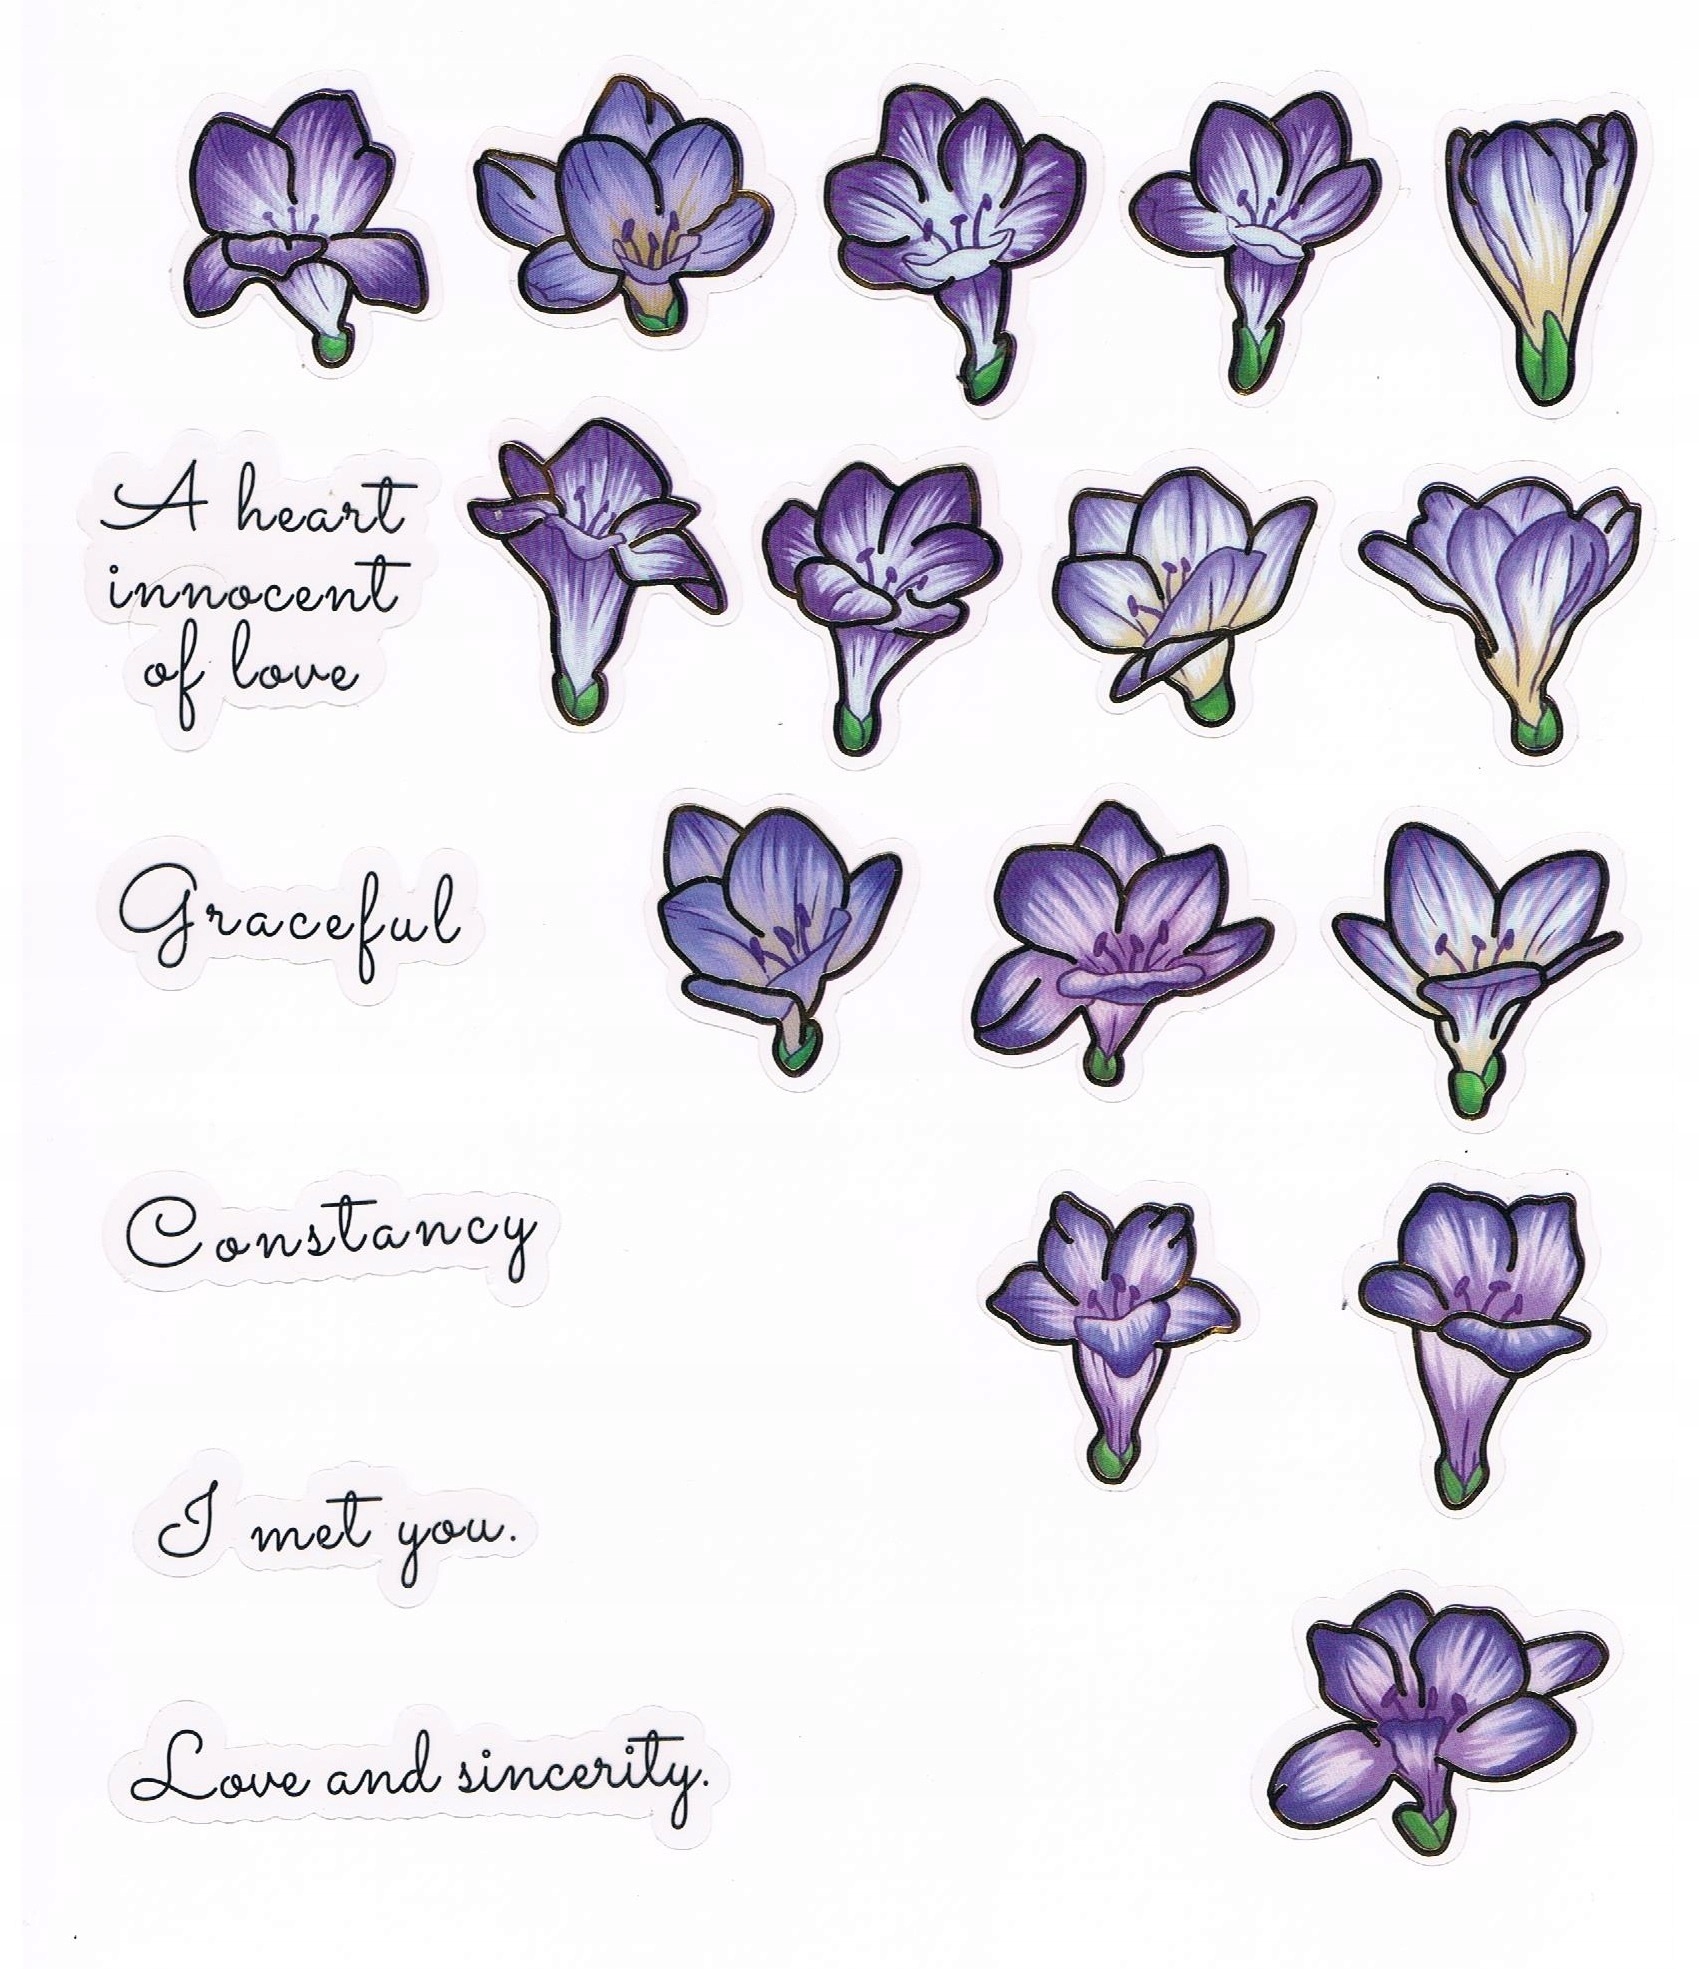 A heart
innocent
of love
Graceful
Constancy
I met you.
Love and sincerity.